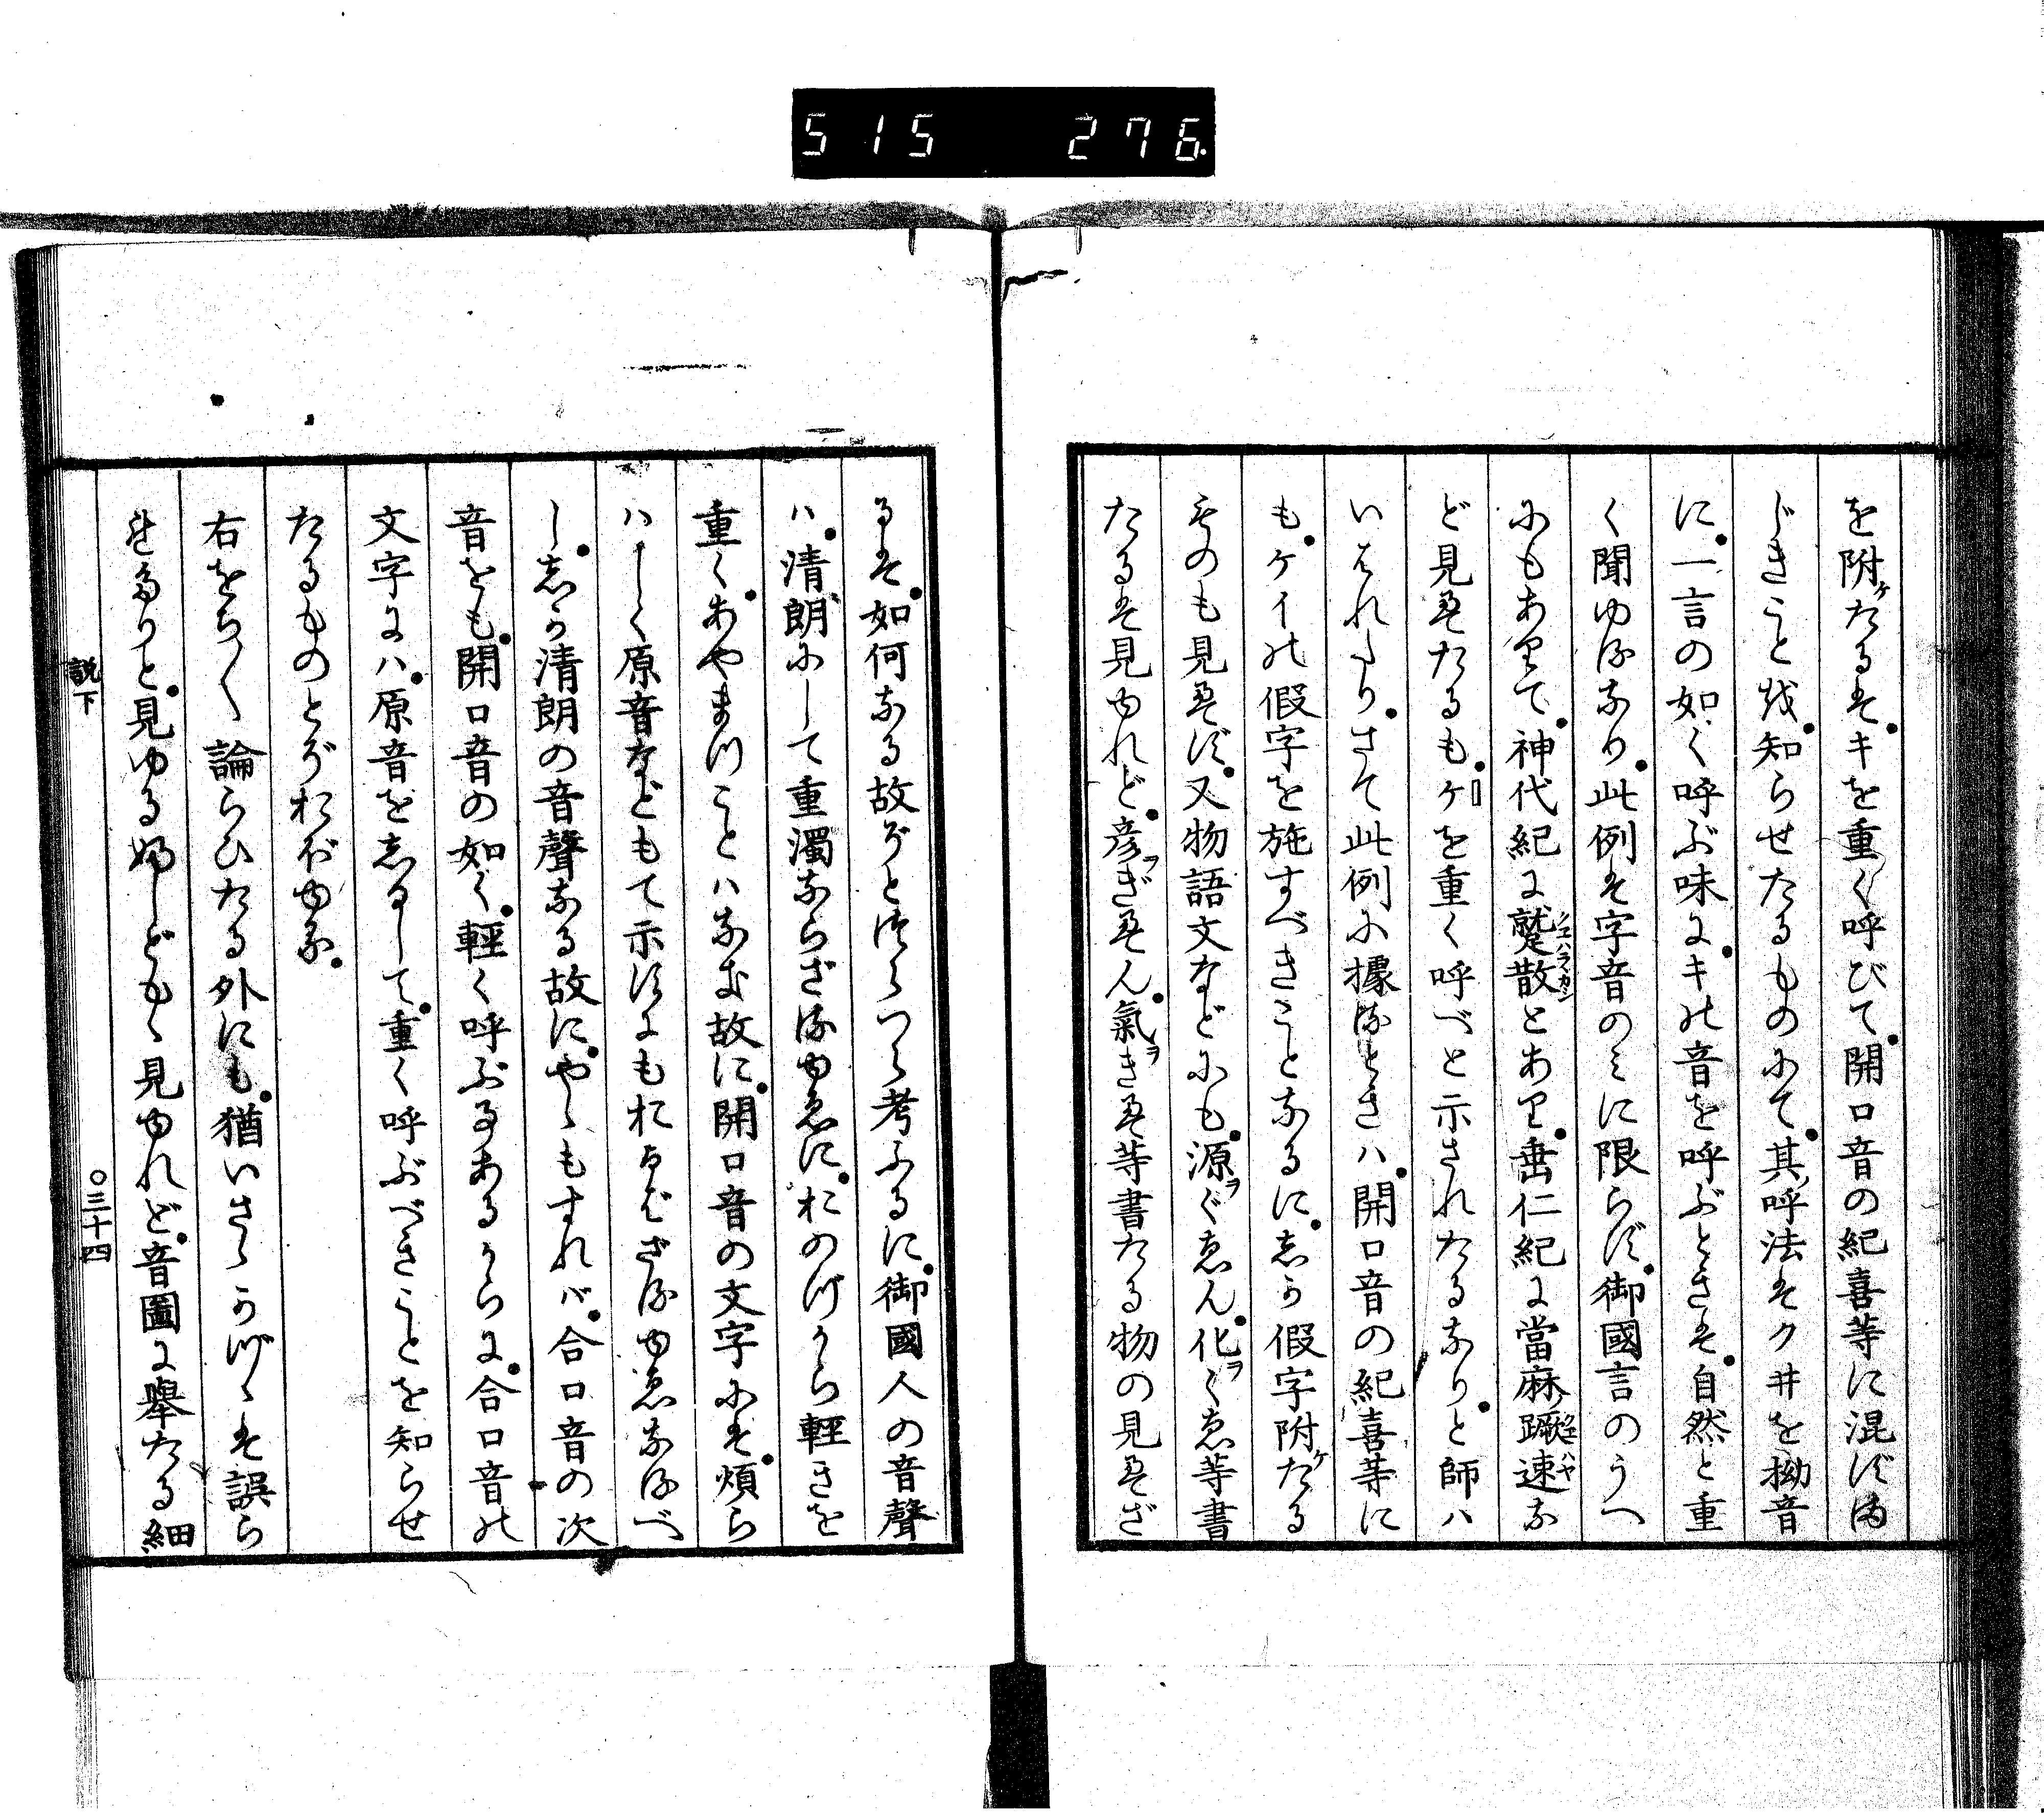 515 276
を附ケたるは。キを重く呼びて。開口音の紀喜等に混ずま
じきこと哉。知らせたるものにて。其ノ呼法はクヰを拗音
に。一言の如く呼ぶ味に。キの音を呼ぶときは。自然と重
く聞ゆるなり。此例は字音のミに限らず。御國言のうへ
にもありて。神代紀に蹴散クヱハラカシとあり。垂仁紀に當麻ノ蹶速クヱハヤな
ど見えたるも。ケを重く呼べと示されたるなり。と師ハ
いはれたり。さて此例に據るときハ。開口音の紀喜等に
も。ケイの假字を施すべきことなるに。志か假字附ケたる
ものも見えず。又物語文などにも。源ヲぐゑん。化ヲくゑ等書
たるは見ゆれど。彦ヲぎえん。氣ヲきえ等書たる物の見えざ
るは。如何なる故ぞとつらつら考ふるに。御國人の音聲
ハ。清朗にして重濁ならざるゆゑに。おのづから輕きを
重く。あやまつことハなき故に。開口音の文字には。煩ら
ハしく原音などもて示すにもおよばざるゆゑなるべ
し。志か清朗の音聲なる故に。やゝもすれバ。合口音の次
音をも。開口音の如く。輕く呼ぶ事あるからに。合口音の
文字にハ。原音を志るして。重く呼ぶべきことを知らせ
たるものとぞおぼゆる。
右をちく論らひたる外にも。猶いさゝかづゝは誤ら
れたりと。見ゆる婦しどもゝ見ゆれど。音圖に擧たる細
説下
○三十四